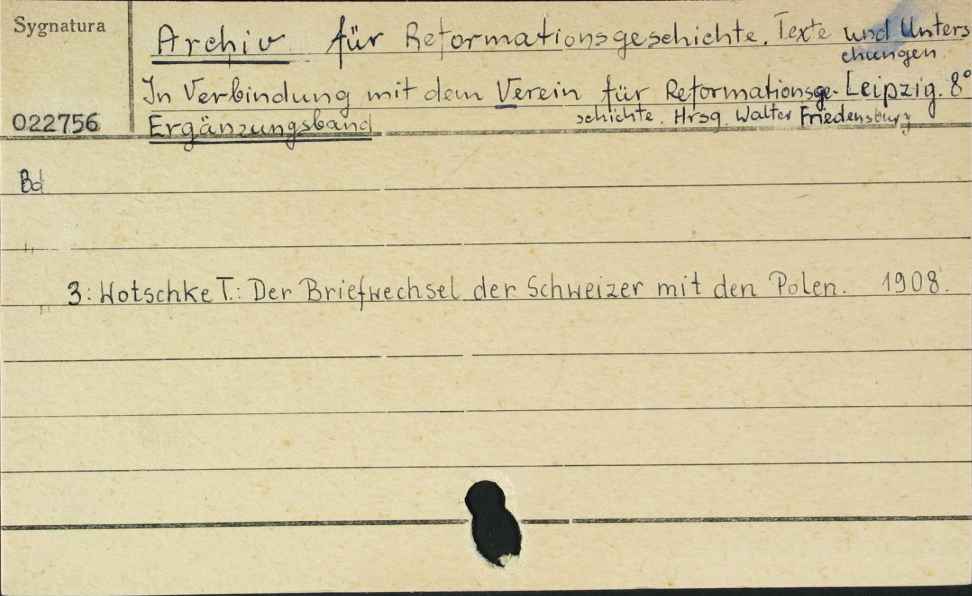 Sygnatura
Archiv für Reformationsgeschichte. Texte und Unters
chungen
In Verbindung mit dem Verein für Reformationsge- Leipzig. 8°
schichte. Hrsg. Walter Friedensburg
022756 Ergänzungsband
Bd
3: Wotschke T.: Der Briefwechsel der Schweizer mit den Polen. 1908.